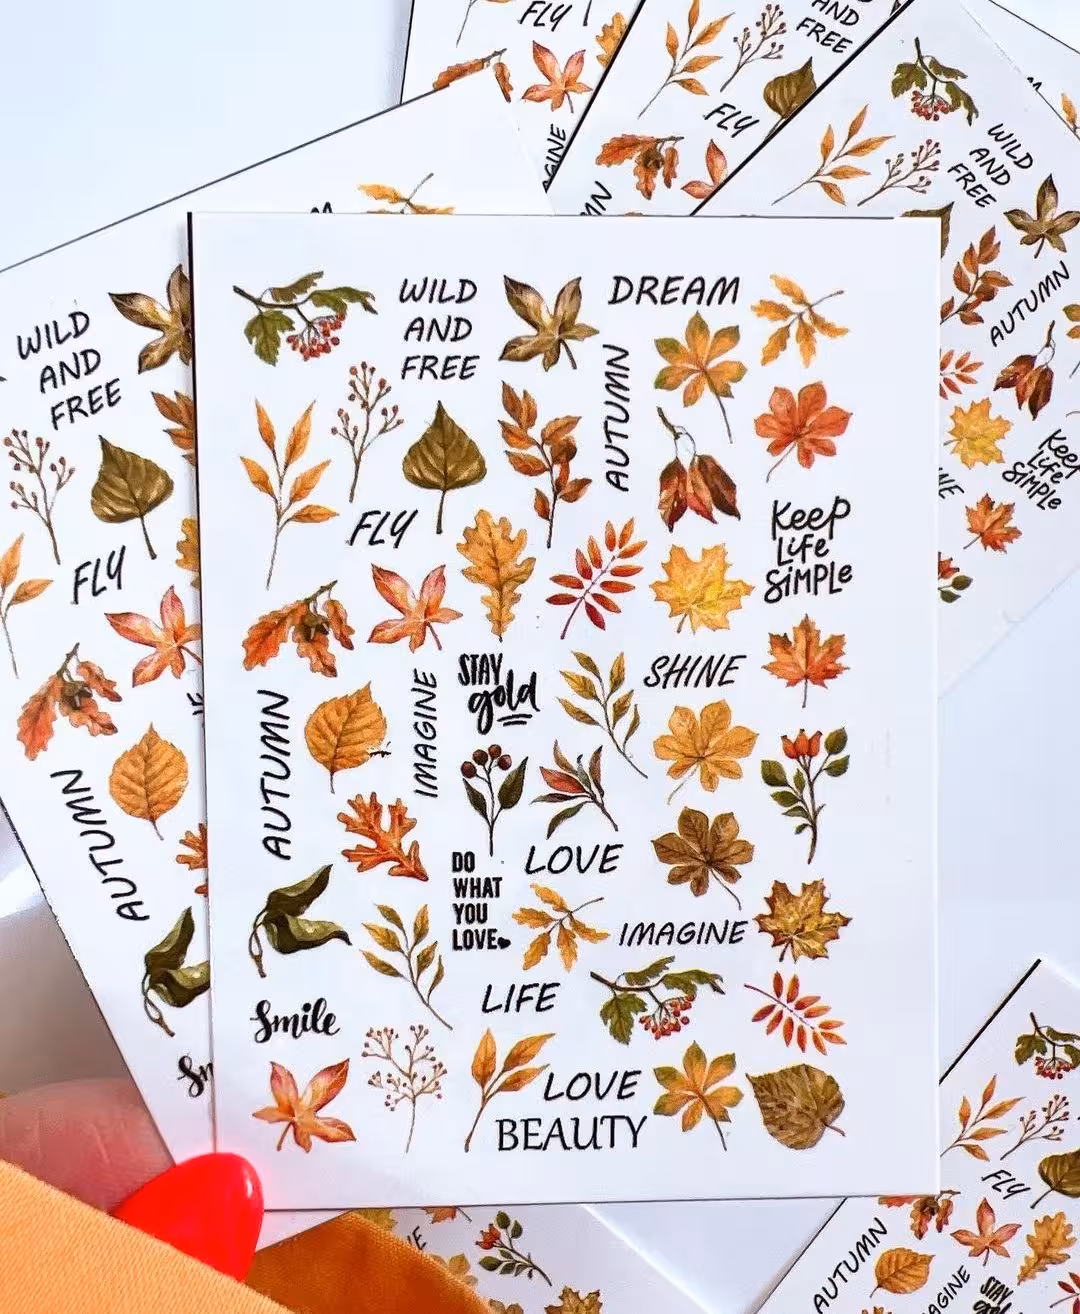 FLY
AND
FREE
FLY
WILD
AND
FREE
AUTUMN
Keep
Life
SiMPLe
WILD
AND
FREE
FLY
AUTUMN
WILD
AND
FREE
DREAM
AUTUMN
FLY
Keep
Life
SiMPLe
STAY
gold
SHINE
IMAGINE
AUTUMN
LOVE
DO
WHAT
YOU
LOVE
IMAGINE
LIFE
Smile
LOVE
BEAUTY
FLY
AUTUMN
STAY